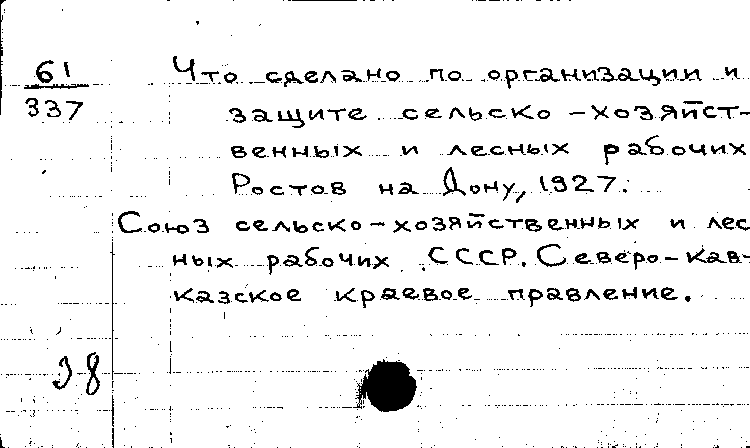 61
337
Что сделано по организации и
защите сельско-хозяйст-
венных и лесных рабочих
Ростов на Дону, 1927.
Союз сельско-хозяйственных и лес
ных рабочих СССР. Северо-кав-
казское краевое правление.
38